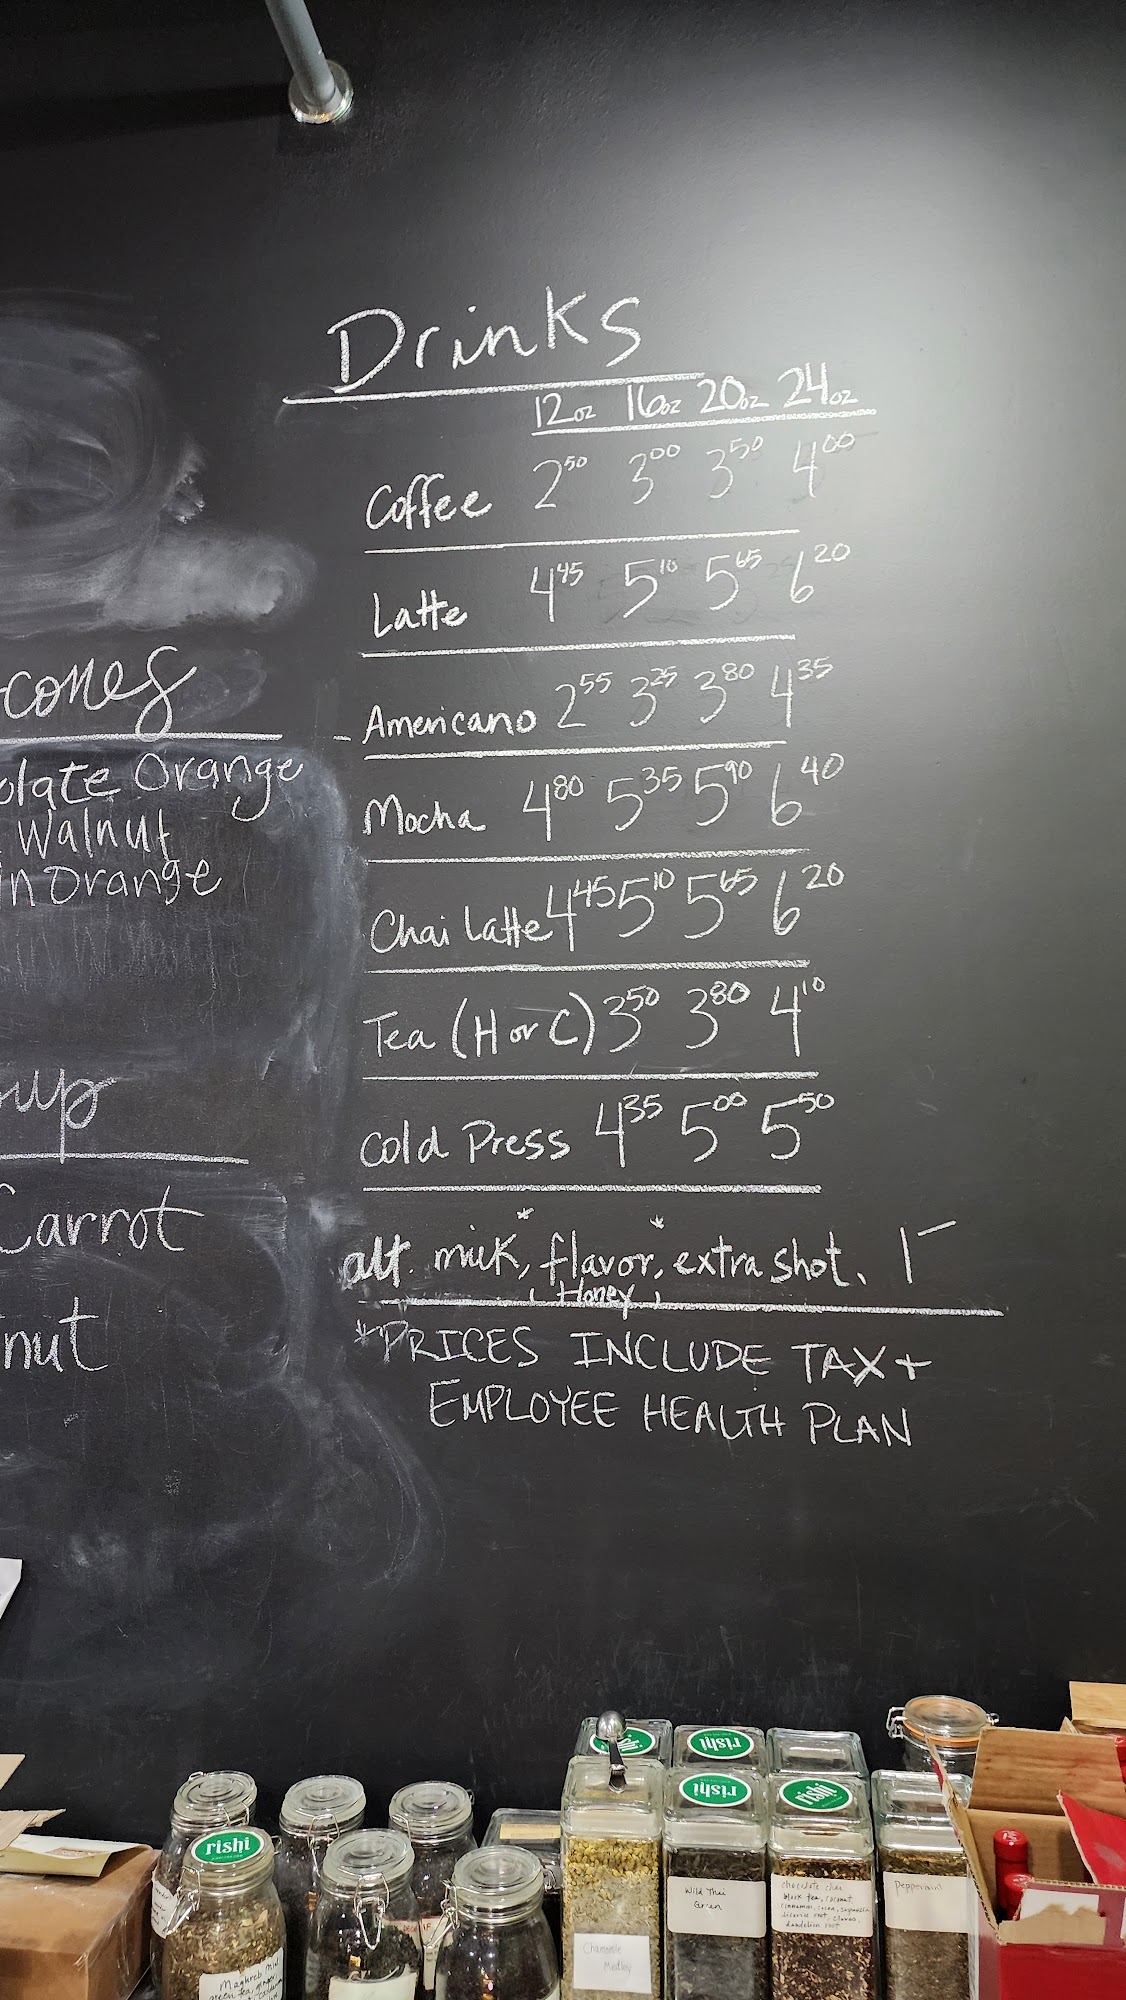 Drinks
12oz 16oz 20oz 24oz
Coffee 2 50 3 00 3 50 4 00
Latte 4 45 5 10 5 65 6 20
Americano 2 55 3 25 3 80 4 35
Mocha 4 80 5 35 5 90 6 40
Chai Latte 4 45 5 10 5 65 6 20
Tea (H or C) 3 50 3 80 4 10
Cold Press 4 35 5 00 5 50
alt. milk,* flavor,* extra shot. 1 –
(Honey)
*PRICES INCLUDE TAX +
EMPLOYEE HEALTH PLAN
cones
olate Orange
Walnut
in Orange
up
Carrot
nut
rishi
rishi
rishi
rishi
Chamomile
Medley
Wild Thai
Green
chocolate chai
black tea, coconut
cinnamon, cocoa,
licorice root, cloves,
dandelion root
Peppermint
green tea, ginger